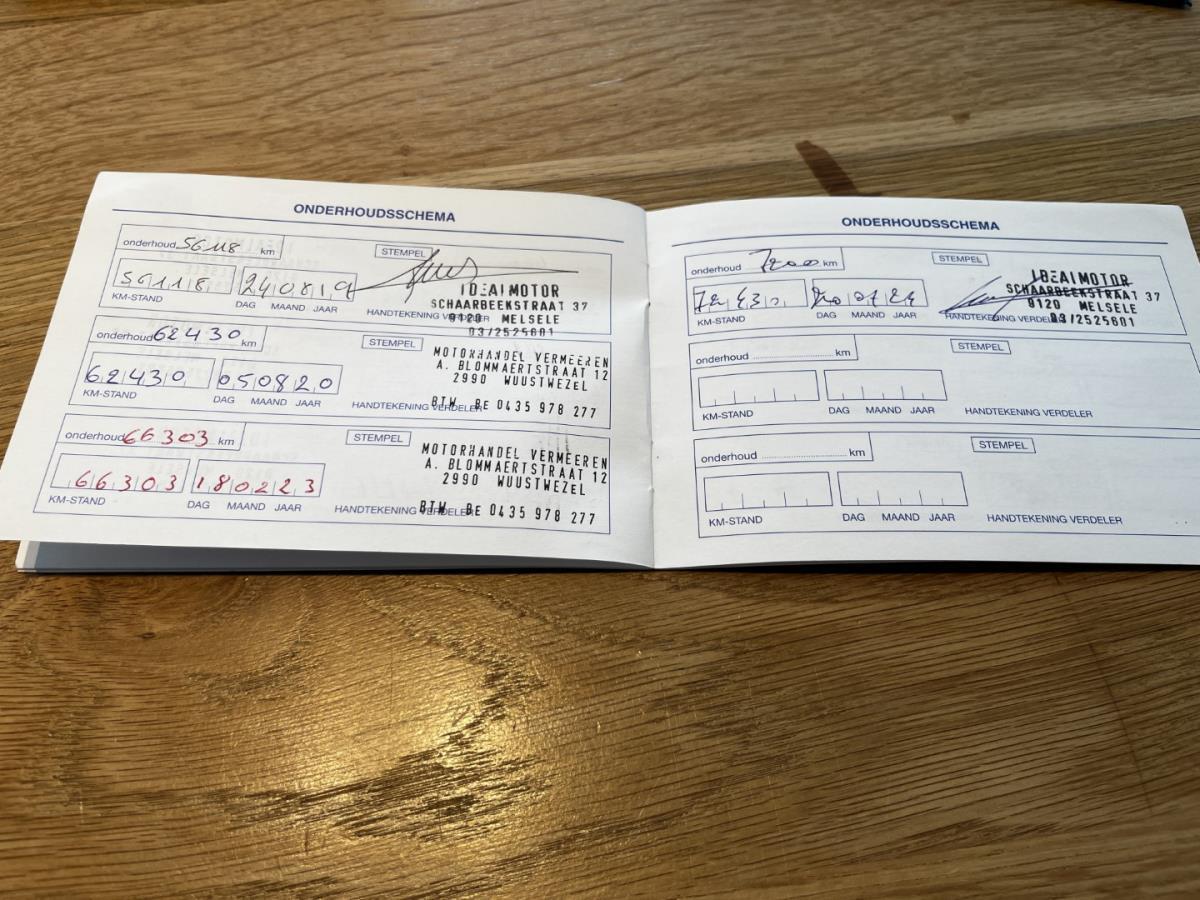 ONDERHOUDSSCHEMA
onderhoud 56118 km
STEMPEL
56118 240819
KM-STAND DAG MAAND JAAR HANDTEKENING VERDELER
IDEAL MOTOR
SCHAARBEEKSTRAAT 37
9120 MELSELE
03/2525601
onderhoud 62430 km
STEMPEL
62430 050820
KM-STAND DAG MAAND JAAR HANDTEKENING VERDELER
MOTORHANDEL VERMEEREN
A. BLOMMAERTSTRAAT 12
2990 WUUSTWEZEL
BTW BE 0435 978 277
onderhoud 66303 km
STEMPEL
66303 180223
KM-STAND DAG MAAND JAAR HANDTEKENING VERDELER
MOTORHANDEL VERMEEREN
A. BLOMMAERTSTRAAT 12
2990 WUUSTWEZEL
BTW BE 0435 978 277
ONDERHOUDSSCHEMA
onderhoud km
STEMPEL
KM-STAND DAG MAAND JAAR HANDTEKENING VERDELER
IDEAL MOTOR
SCHAARBEEKSTRAAT 37
9120 MELSELE
03/2525601
onderhoud km
STEMPEL
KM-STAND DAG MAAND JAAR HANDTEKENING VERDELER
onderhoud km
STEMPEL
KM-STAND DAG MAAND JAAR HANDTEKENING VERDELER